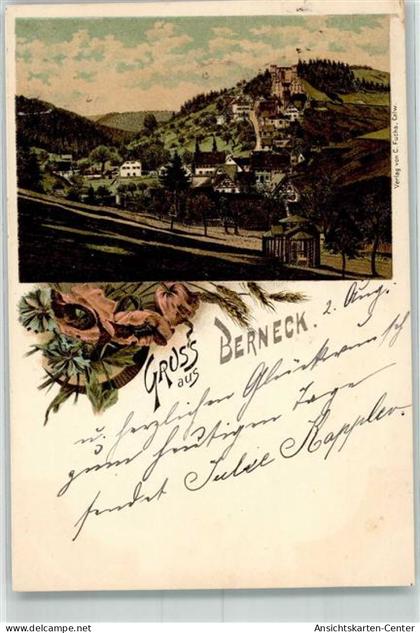 Verlag von C. Fuchs, Calw.
GRUSS
aus
BERNECK. 2. Aug.
u. herzlichen Glückwunsch
zum heutigen Tage
sendet Julie Kappler.
Ansichtskarten-Center